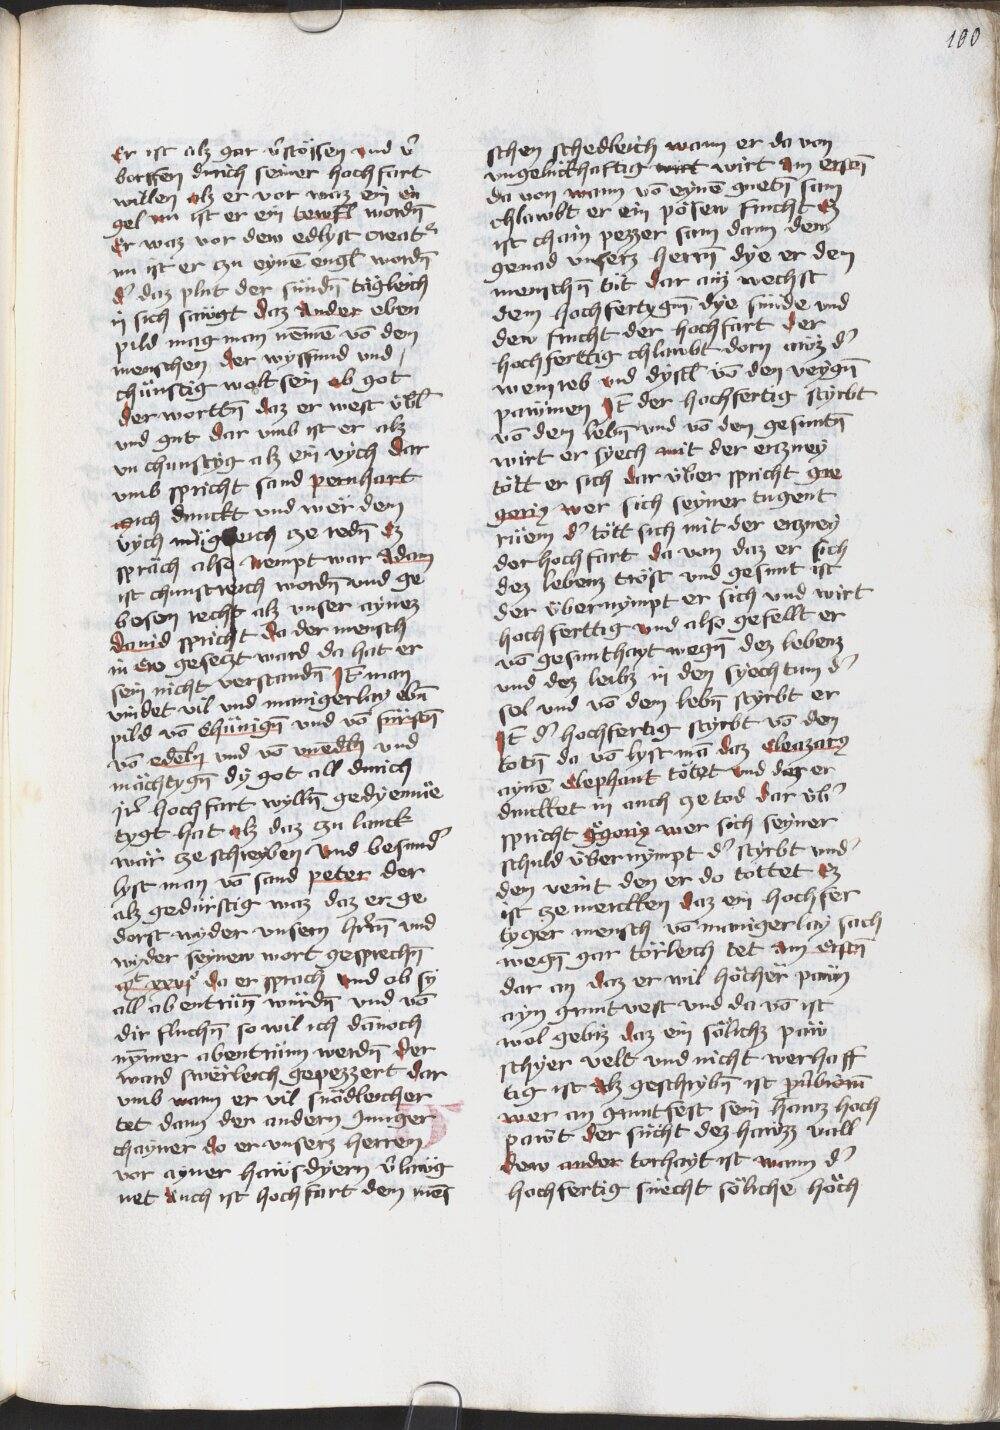 100
Er ist alz gar v̄stössen und v̄
borffen durich seiner hochfart
willen alz er vor waz ein en
gel nu ist er ein tewfl wordn̄
Er waz vor dew edlyst creatᷣ
nu ist er czu eynē engl wordn̄
dᷣ daz plut der sündn̄ tägleich
in sich sawgt daz Ander eben
pild mag man nēmē vō dem
menschen der wyssund und
chünstig wolt sein ob got
der wortt̄n daz er west übl
und gut dar umb ist er alz
un chunstyg alz ein vych dar
umb spricht sand pernhart
mich dunckt und wer dem
vych mügleich cze redn̄ Ez
sprach also nempt war Adam
ist chunstreich wordn̄ und ge
besen recht alz unser aynez
dauid spricht da der mensch
in ere geseczt ward da hat er
sein nicht verstandn̄ It̄ man
vindet vil und manigerlay ebn̄
pild vō chünign̄ und vō fürstn̄
vō edeln und vō unedln̄ und
mächtygn̄ dy got all durich
jr̄ hochfart wylln̄ gedyemüe
tygt hat alz daz czu lanck
wär cze schreyben Und besundᷣ
lyst man vō sand peter der
alz gedürstig waz daz er ge
dorst wyder unsern hrn̄ und
wyder seynew wort gesprechn̄
mt xxvjᵒ da er sprach und ob sy
all ab entrün̄ würdn̄ und vō
dir fluchn̄ so wil ich dānoch
nymer abentrünn werdn̄ der
ward swërleich gepezzert dar
umb wann er vil snödleicher
tet dann der andern Junger
chayner do er unserz herren
vor ayner hawsdyern v̄lawg
net Auch ist hochfart den men̄
schen schedleich wann er da von
ungelükhaftig wirt Am erstn̄
da von wann vō eynē guetn̄ sam
chlawbt er ein pösew frucht Ez
ist chain pezzer sam dann dew
genad unserz herrn̄ dye er den
menschn̄ tüt dar auz wechst
dem hochfertygn̄ dye sünde und
dew frucht der hochfart der
hochferttig chlawbt dorn awz dᷣ
weinreb und dystl vō den veygn̄
pawmen It̄ der hochfertig styrbt
vō dem lebn̄ und vō den gesuntn̄
wirt er syech mit der erczney
tött er sich dar über spricht gre
gorig wer sich seyner tugent
rüem dᷣ tött sich mit der erczney
der hochfart da von daz er sich
dez lebenz tröst und gesunt ist
der übernympt er sich und wirt
hochferttig und also gefellt er
vō gesunthayt wegn̄ dez lebenz
und dez leibz in den syechtum dᷣ
sel und vō dem lebn̄ styrbt er
It̄ dᷣ hochfertig styrbt vō den
totn̄ da vō lyst mā daz Eleazarꝰ
aynē Elephant tötet und der er
druckket in auch ze tod dar übᷣ
spricht Ggorig wer sich seyner
schuld übernympt dᷣ styrbt undᷣ
dem veint den er do tottet Ez
ist ze merckken daz ein hochfer
tyger mensch vō manigerlay sach
wegn̄ gar törleich tet Am erstn̄
dar an daz er wil höcher pawn
ayn gruntvest und da vō ist
wol gebiz daz ein sölichz paw
schyer velt und nicht werhaff
tig ist Alz geschrybn̄ ist
wer an gruntfest sein hawz hoch
pawt der sücht dez hawzz vall
dew ander torhayt ist wann dᷣ
hochfertig suecht söliche höch